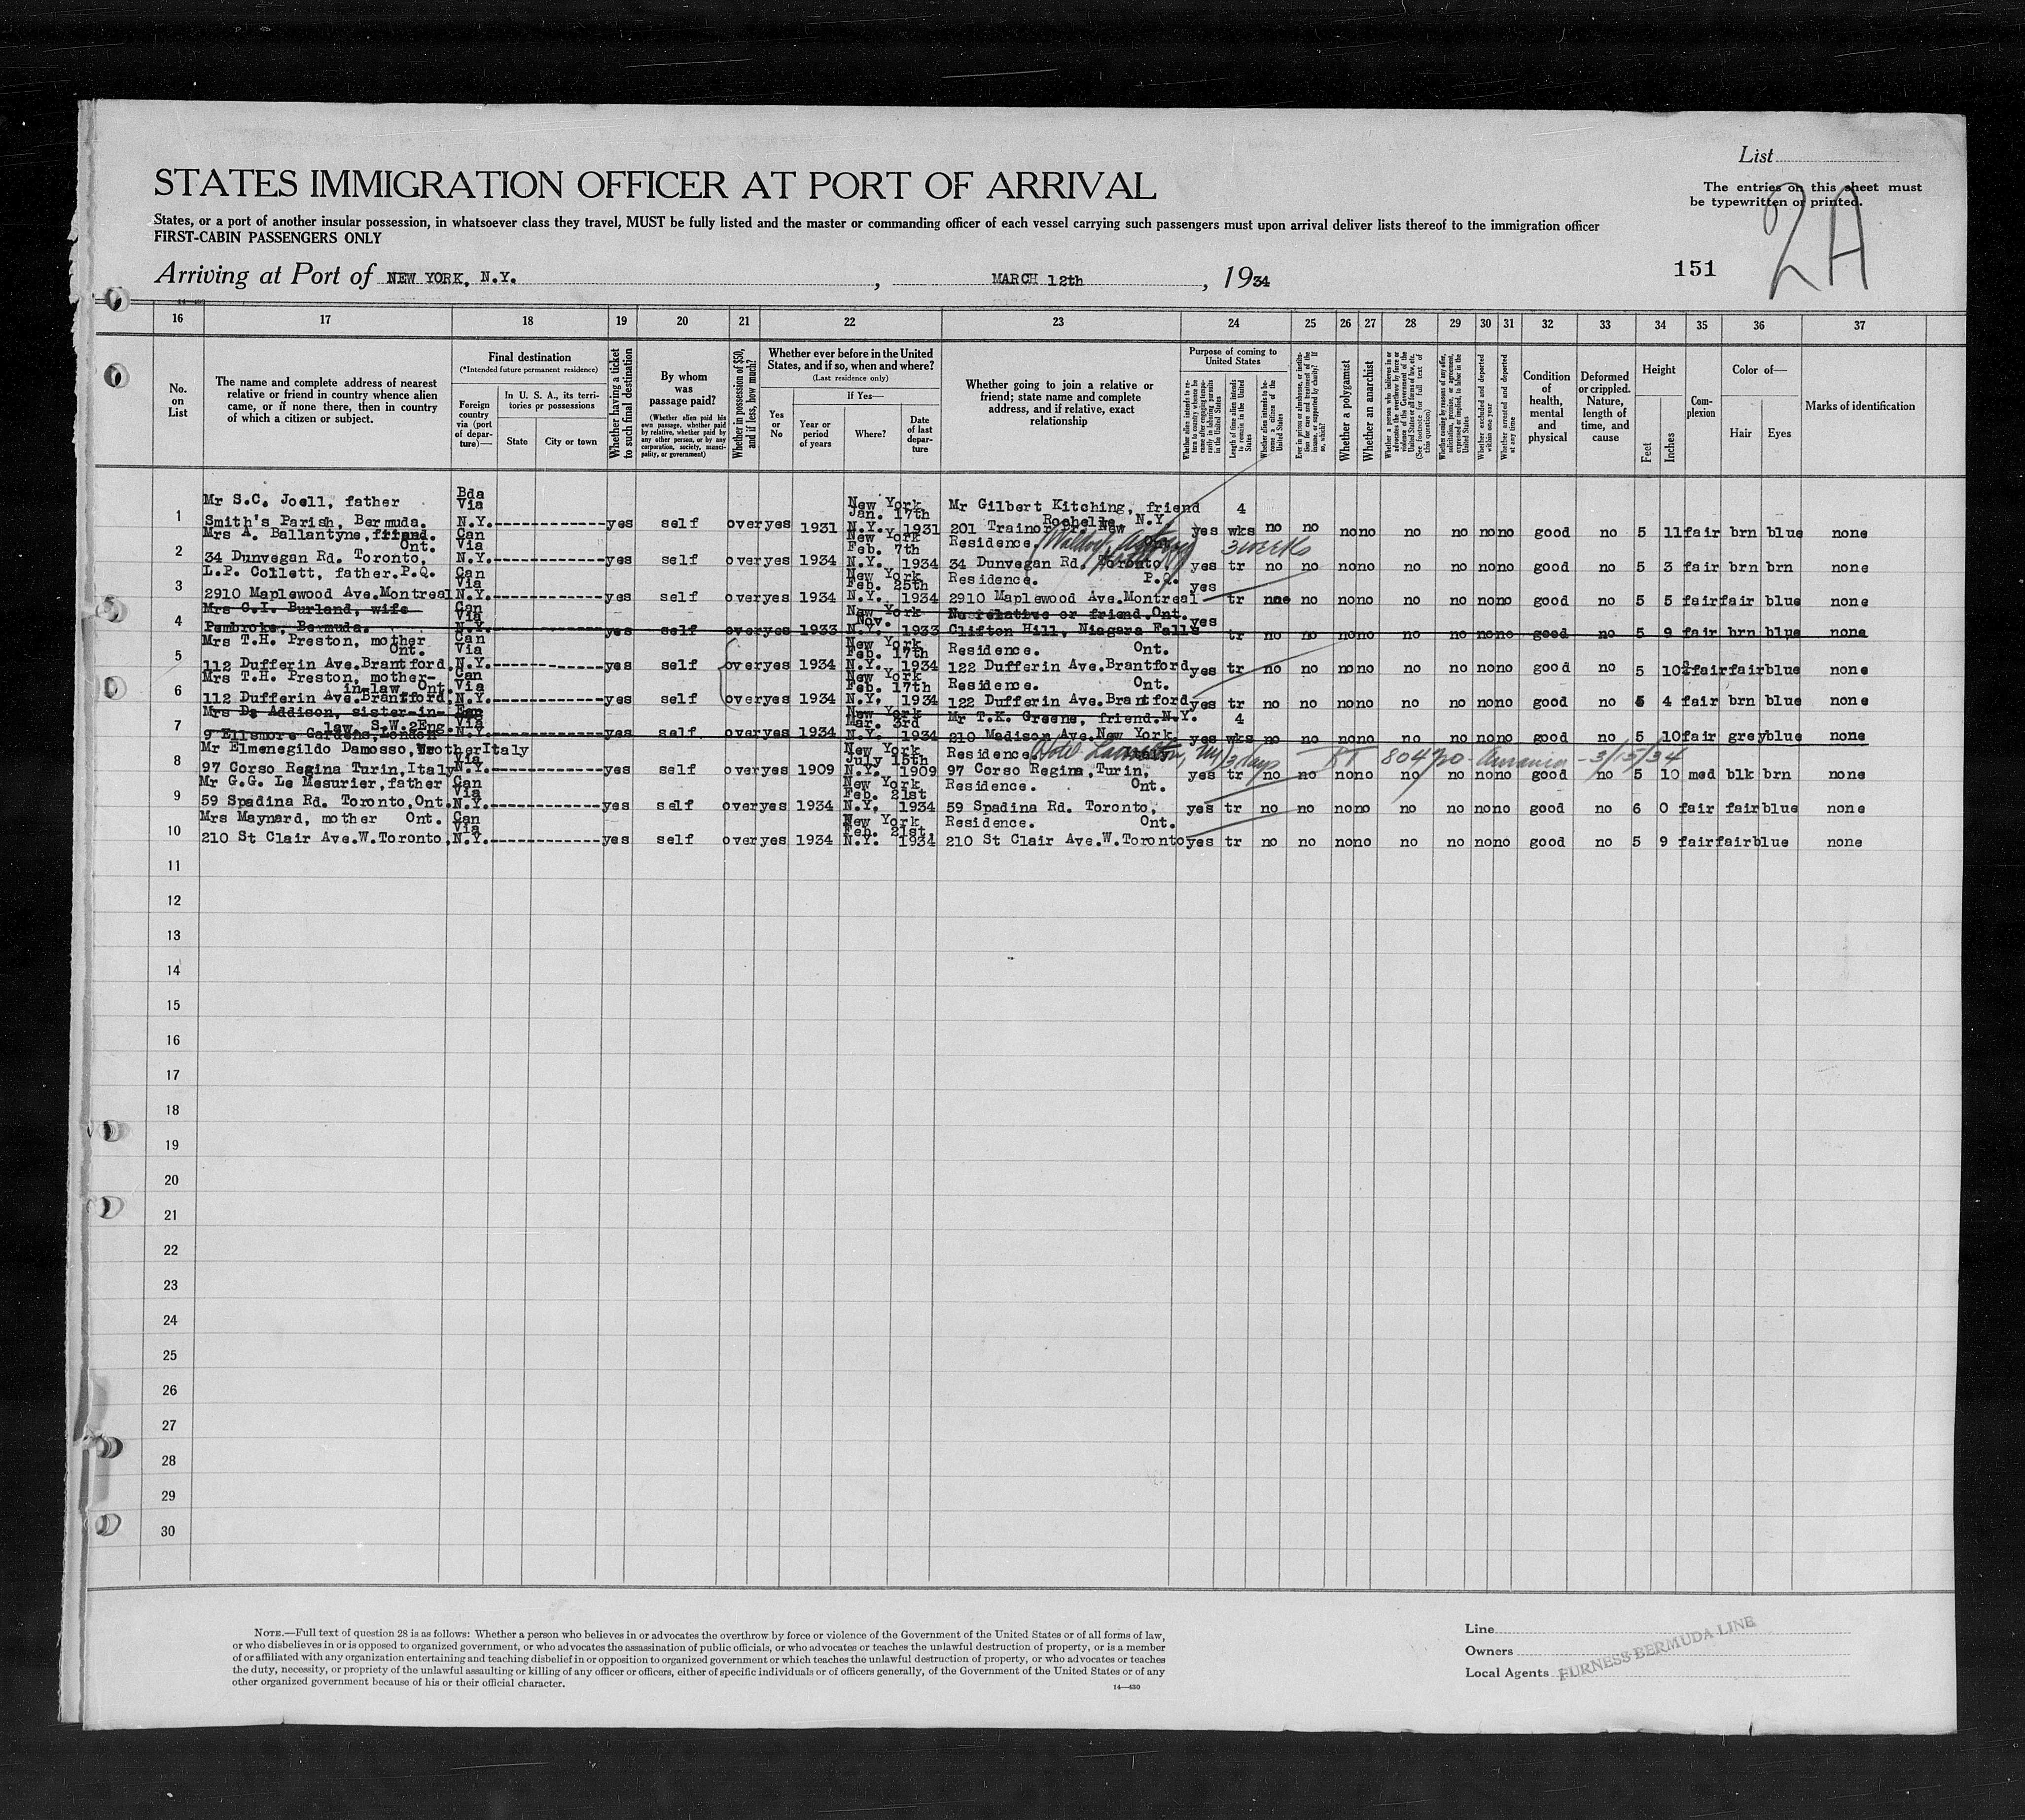 List
The entries on this sheet must
be typewritten or printed.
2A
151
STATES IMMIGRATION OFFICER AT PORT OF ARRIVAL
States, or a port of another insular possession, in whatsoever class they travel, MUST be fully listed and the master or commanding officer of each vessel carrying such passengers must upon arrival deliver lists thereof to the immigration officer
FIRST-CABIN PASSENGERS ONLY
Arriving at Port of NEW YORK, N.Y., MARCH 12th, 1934
16 17 18 19 20 21 22 23 24 25 26 27 28 29 30 31 32 33 34 35 36 37
No. on List
The name and complete address of nearest relative or friend in country whence alien came, or if none there, then in country of which a citizen or subject.
Final destination
(*Intended future permanent residence)
Foreign country via (port of departure)—
In U. S. A., its territories or possessions
State
City or town
Whether having a ticket to such final destination
By whom was passage paid?
(Whether alien paid his own passage, whether paid by relative, whether paid by any other person, or by any corporation, society, municipality, or government)
Whether in possession of $50, and if less, how much?
Whether ever before in the United States, and if so, when and where?
(Last residence only)
Yes or No
If Yes—
Year or period of years
Where?
Date of last departure
Whether going to join a relative or friend; state name and complete address, and if relative, exact relationship
Purpose of coming to United States
Whether alien intends to return to country whence he came after engaging temporarily in laboring pursuits in the United States
Length of time alien intends to remain in the United States
Whether alien intends to become a citizen of the United States
Ever in prison or almshouse, or institution for care and treatment of the insane, or supported by charity? If so, which?
Whether a polygamist
Whether an anarchist
Whether a person who believes in or advocates the overthrow by force or violence of the Government of the United States or all forms of law, etc. (See footnote for full text of this question)
Whether coming by reason of any offer, solicitation, promise, or agreement, expressed or implied, to labor in the United States
Whether excluded and deported within one year
Whether arrested and deported at any time
Condition of health, mental and physical
Deformed or crippled. Nature, length of time, and cause
Height
Feet
Inches
Complexion
Color of—
Hair
Eyes
Marks of identification
1 Mr S.C. Joell, father Smith's Parish, Bermuda. Bda Via N.Y. yes self over yes 1931 New York N.Y. Jan. 17th 1931 Mr Gilbert Kitching, friend 201 Trainor Dr. New Rochelle, N.Y. yes 4 wks no no no no no no no no good no 5 11 fair brn blue none
2 Mrs A. Ballantyne, friend. 34 Dunvegan Rd. Toronto, Ont. Can Via N.Y. yes self over yes 1934 New York N.Y. Feb. 7th 1934 Residence. 34 Dunvegan Rd. Toronto. 3 weeks yes tr no no no no no no no no good no 5 3 fair brn brn none
3 L.P. Collett, father. 2910 Maplewood Ave. Montreal P.Q. Can Via N.Y. yes self over yes 1934 New York N.Y. Feb. 25th 1934 Residence. 2910 Maplewood Ave. Montreal P.Q. yes tr no no no no no no no no good no 5 5 fair fair blue none
4 Mrs G.I. Burland, wife Pembroke, Bermuda. Can Via N.Y. yes self over yes 1933 New York N.Y. Nov. 1933 No relative or friend. Clifton Hill, Niagara Falls Ont. yes tr no no no no no no no no good no 5 9 fair brn blue none
5 Mrs T.H. Preston, mother 112 Dufferin Ave. Brantford. Ont. Can Via N.Y. yes self over yes 1934 New York N.Y. Feb. 17th 1934 Residence. 122 Dufferin Ave. Brantford Ont. yes tr no no no no no no no no good no 5 10½ fair fair blue none
6 Mrs T.H. Preston, mother-in-law 112 Dufferin Ave. Brantford. Ont. Can Via N.Y. yes self over yes 1934 New York N.Y. Feb. 17th 1934 Residence. 122 Dufferin Ave. Brantford Ont. yes tr no no no no no no no no good no 5 4 fair brn blue none
7 Mrs D. Addison, sister-in-law 9 Ellsmore Gardens, London S.W. 2 Eng. Via N.Y. yes self over yes 1934 New York N.Y. Mar. 3rd 1934 Mr T.K. Greene, friend. 210 Madison Ave. New York. N.Y. yes 4 wks no no no no no no no no good no 5 10 fair grey blue none
8 Mr Elmenegildo Damosso, brother 97 Corso Regina Turin, Italy Italy Via N.Y. yes self over yes 1909 New York N.Y. July 15th 1909 Residence. Hotel 97 Corso Regina, Turin, 3 days yes tr no no no no no no no no good no 5 10 med blk brn none 3/15/34
9 Mr G.G. Le Mesurier, father 59 Spadina Rd. Toronto, Ont. Can Via N.Y. yes self over yes 1934 New York N.Y. Feb. 21st 1934 Residence. 59 Spadina Rd. Toronto, Ont. yes tr no no no no no no no no good no 6 0 fair fair blue none
10 Mrs Maynard, mother 210 St Clair Ave. W. Toronto, Ont. Can Via N.Y. yes self over yes 1934 New York N.Y. Feb. 21st, 1934 Residence. 210 St Clair Ave. W. Toronto Ont. yes tr no no no no no no no no good no 5 9 fair fair blue none
11
12
13
14
15
16
17
18
19
20
21
22
23
24
25
26
27
28
29
30
NOTE.—Full text of question 28 is as follows: Whether a person who believes in or advocates the overthrow by force or violence of the Government of the United States or of all forms of law,
or who disbelieves in or is opposed to organized government, or who advocates the assassination of public officials, or who advocates or teaches the unlawful destruction of property, or is a member
of or affiliated with any organization entertaining and teaching disbelief in or opposition to organized government or which teaches the unlawful destruction of property, or who advocates or teaches
the duty, necessity, or propriety of the unlawful assaulting or killing of any officer or officers, either of specific individuals or of officers generally, of the Government of the United States or of any
other organized government because of his or their official character.
14—430
Line
Owners
Local Agents FURNESS BERMUDA LINE